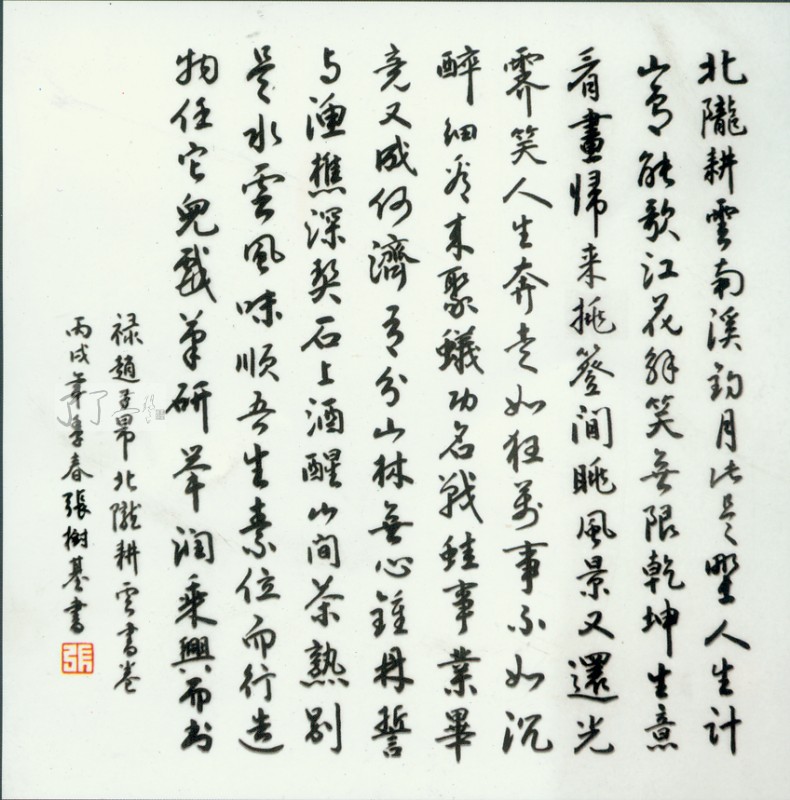 北隴耕雲南溪釣月此是野人生計
山鳥能歌江花解笑無限乾坤生意
看畫歸來挑簦閒眺風景又還光
霽笑人生奔走如狂萬事不如沉
醉細看來聚蟻功名戰蛙事業畢
竟又成何濟有分山林無心鍾鼎誓
与漁樵深契石上酒醒山间茶熟别
是水雲風味順吾生素位而行造
物任它兒戲筆研平润乘興而書
禄趙子昂北隴耕雲書卷
丙戌年季春張樹基書
張